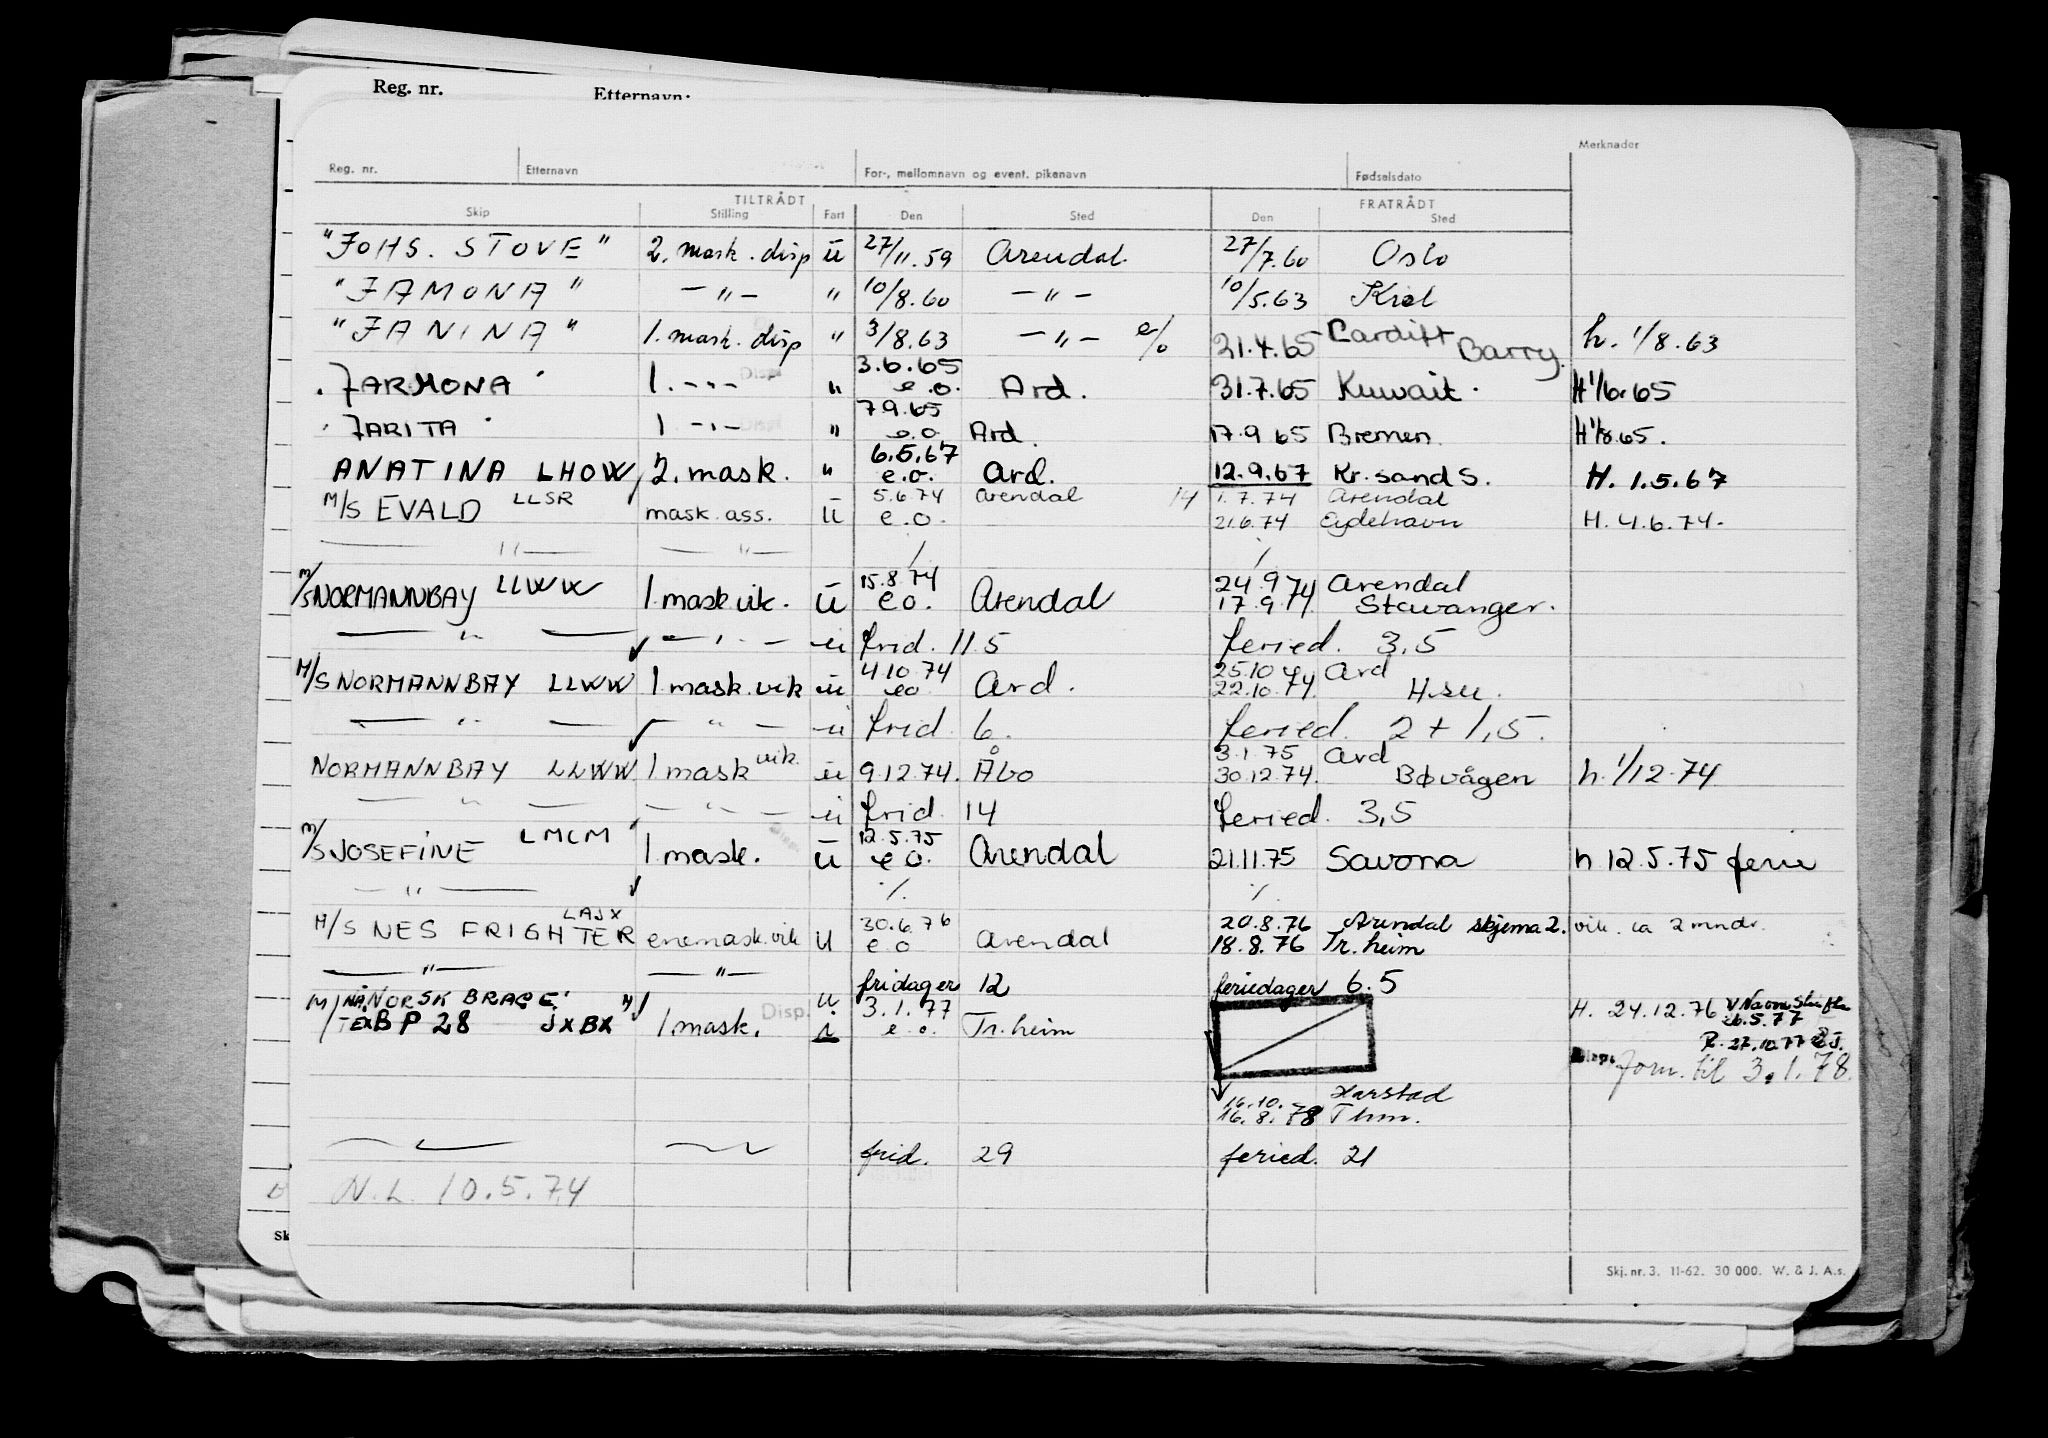 Reg. nr. Etternavn:
Merknader
Reg. nr. Etternavn For-, mellomnavn og event. pikenavn Fødselsdato
TILTRÅDT FRATRÅDT
Skip Stilling Fart Den Sted Den Sted
"JOHS. STOVE" 2. mask. disp ü 27/11.59 Arendal 27/7.60 Oslo
"JAMONA" -"- " 10/8.60 -"- 10/5.63 Kiel
"JANINA" 1. mask. disp " 3/8.63 -"- e/o 21.4.65 Cardiff Barry. h. 1/8.63
3.6.65
"JARMONA" 1. -"- Disp " e.o. Ard. 31.7.65 Kuwait. H 1/6.65
7.9.65
"JARITA" 1 -"- Disp " e.o. Ard. 17.9.65 Bremen. H 1/8.65.
6.5.67
ANATINA LHOW, 2. mask. " e.o. Ard. 12.9.67 Kr.sand S. H. 1.5.67
5.6.74 Arendal 14 1.7.74 Arendal
M/S EVALD LLSR mask. ass. ü e.o. 21.6.74 Eydehavn H. 4.6.74.
— " — — " — % %
15.8.74 24.9.74 Arendal
M/S NORMANNBAY LLWW 1. mask vik. ü e.o. Arendal 17.9.74 Stavanger.
— " — — " — ü frid. 11.5 feried. 3,5
4.10.74 25.10.74 Ard
M/S NORMANNBAY LLWW 1 mask. vik ü eo Ard. 22.10.74 H.su.
— " — — " — ü frid. 6. feried. 2 + 1,5.
3.1.75 Ard
NORMANNBAY LLWW 1 mask vik. ü 9.12.74. Åbo 30.12.74. Bøvågen h. 1/12.74
— " — — " — ü frid. 14 feried. 3,5
12.5.75
M/S JOSEFINE LMCM 1. mask. ü e o. Arendal 21.11.75 Savona h. 12.5.75 ferie
— " — % %
LAJX 30.6.76 20.8.76 Arendal skjema 2. vik. ca 2 mndr.
M/S NES FRIGHTER enemask. vik u e o Arendal 18.8.76 Tr. heim
— " — — " — fridager 12 feriedager 6.5
M/ NÅ NORSK BRAGE u 3.1.77 H. 24.12.76 V. Navneskifte
EX BP 28 JXBX 1 mask. Disp. e.o. Tr. heim 26.5.77
R. 27.10.77
Disp. Forn. til 3.1.78.
16.10. Harstad
16.8.78 Thm.
frid. 29 feried. 21
N.L. 10.5.74
Sk
Skj. nr. 3. 11-62. 30 000. W. & J. A.s.